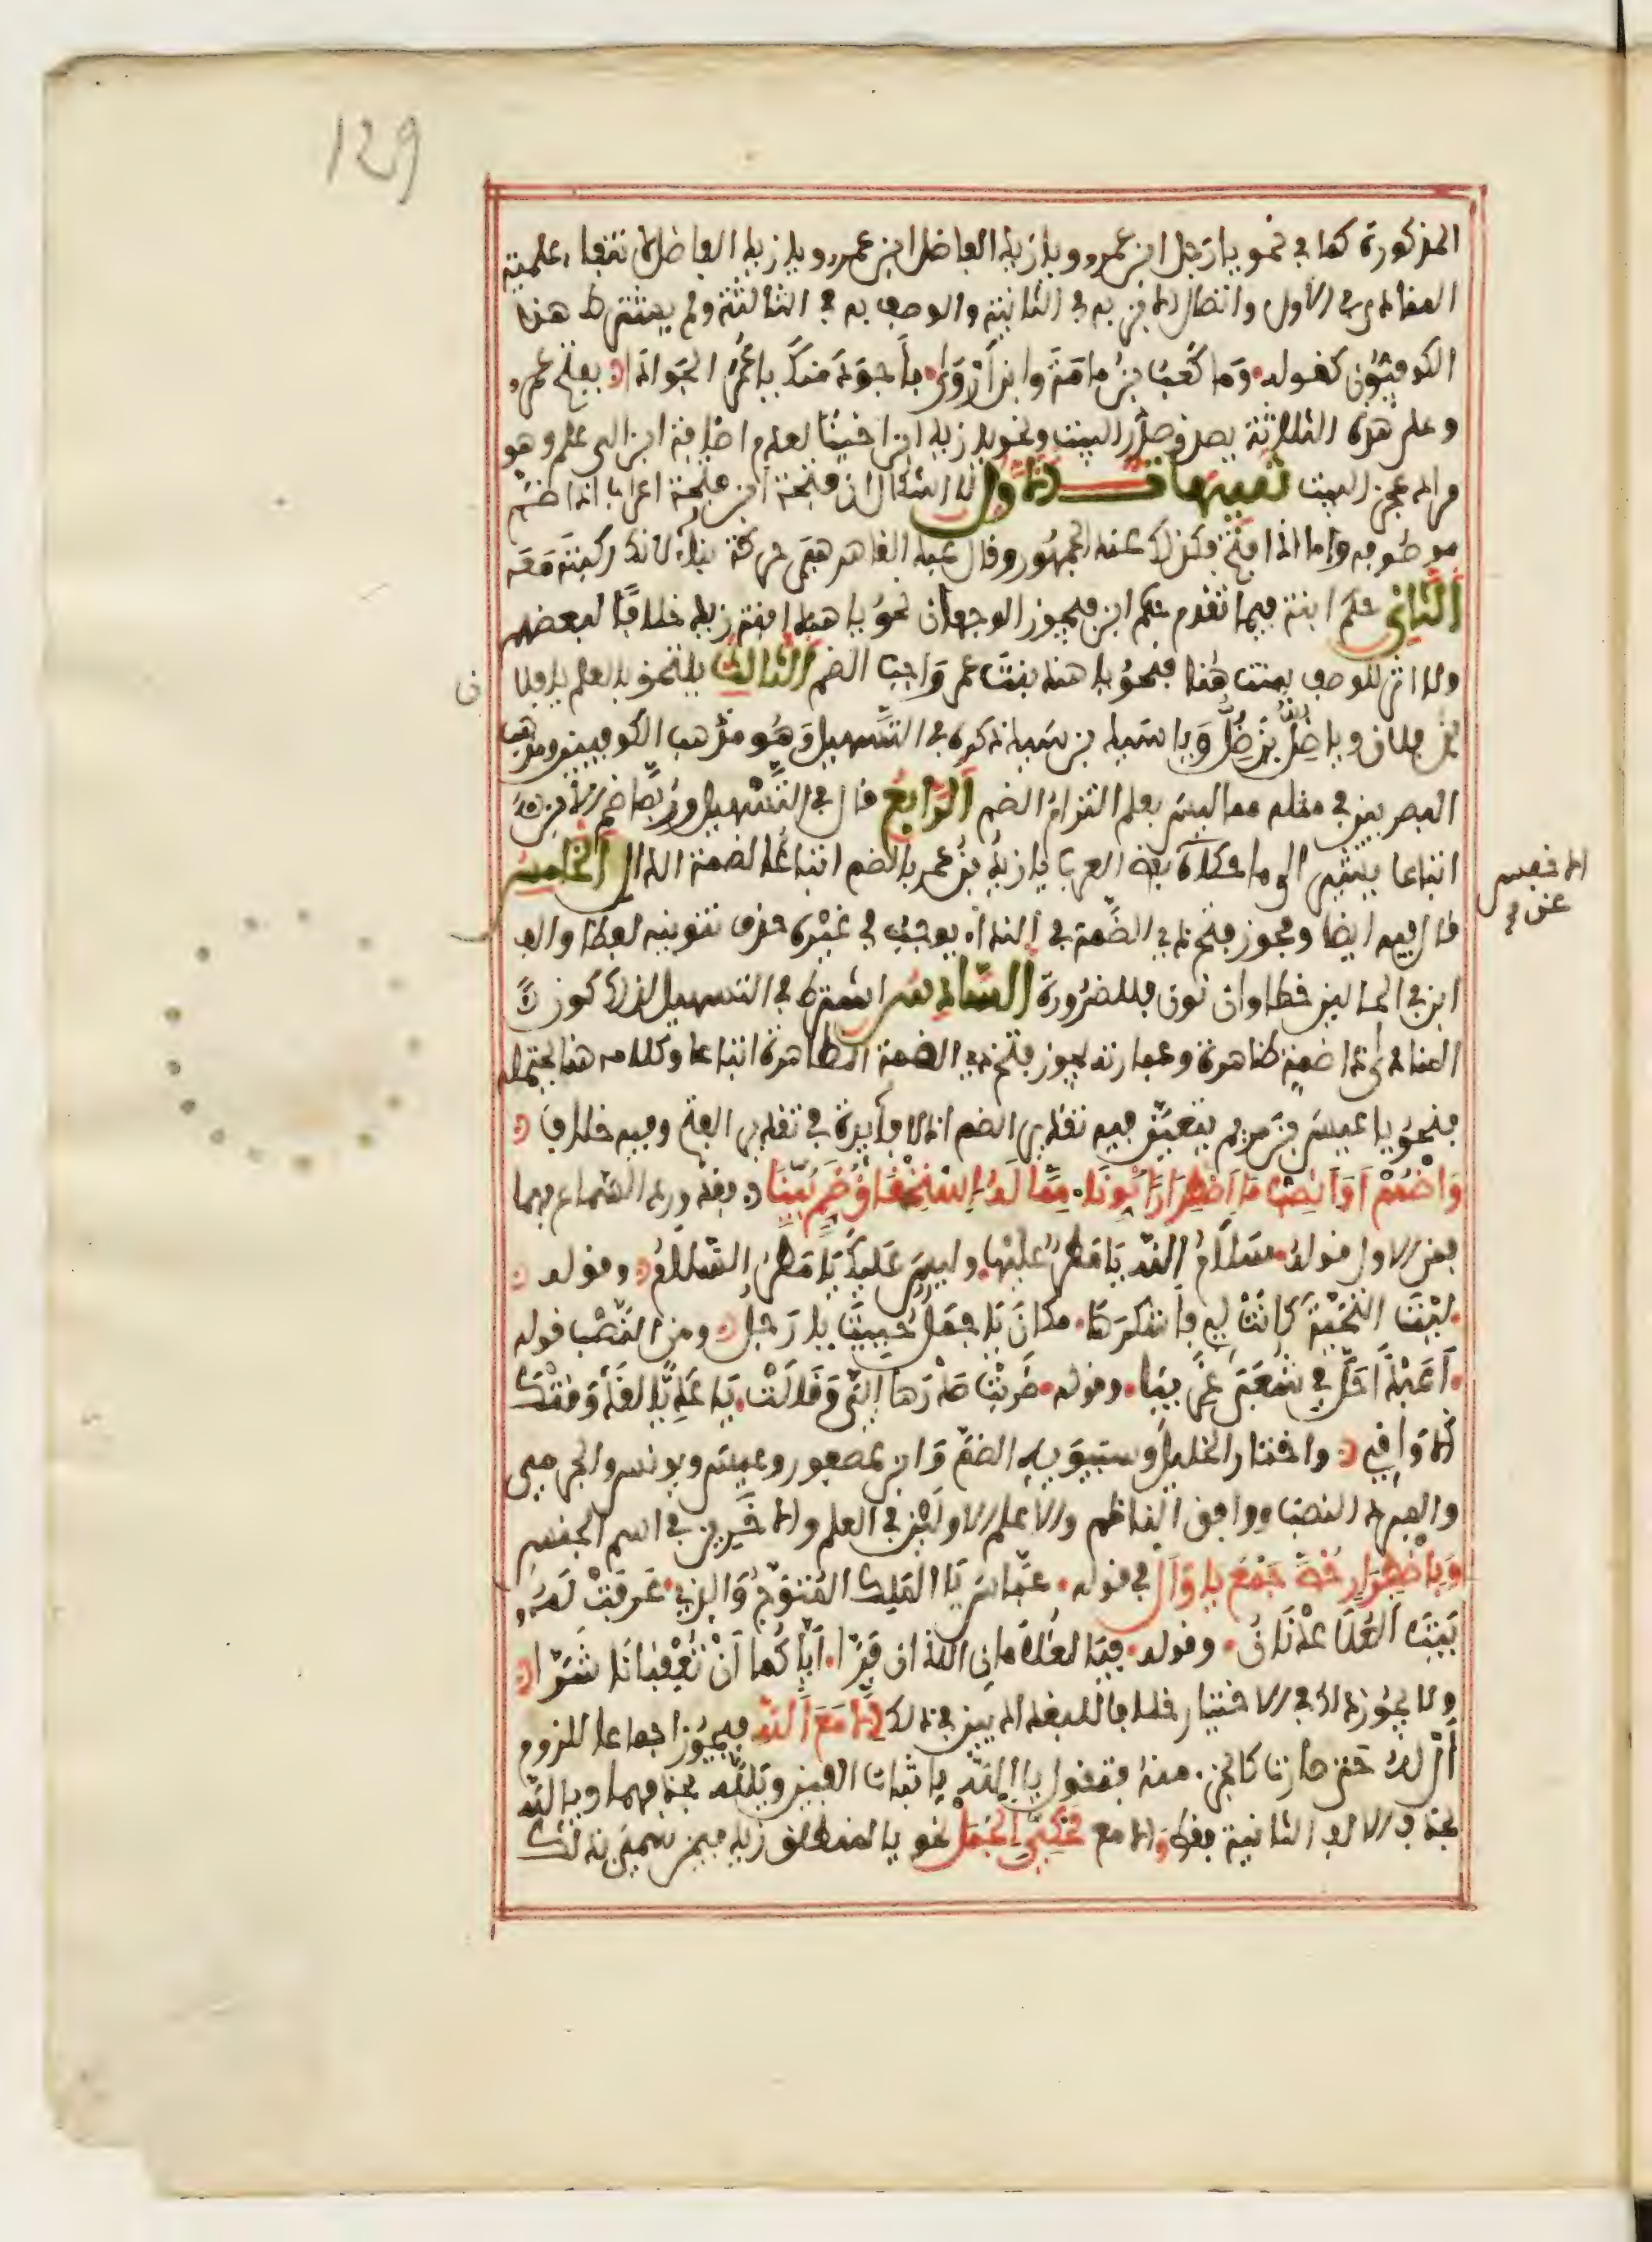 129
المذكورة كما في نحو يا رجل ابن عمرو ويا زيد الفاضل ابن عمرو ويا زيد الفاضل لانتفاء علمية
المنادى في الاول واتصال الابن به في الثانية والوصف به في الثالثة ولم يشترط هذا
الكوفيون كقوله وَما كَعبُ بنُ مامَةَ وابنُ أرْوَى بأَجوَدَ منكَ ياعُمَرَ الجَوادَا بفتح عمر
وعلى هذه الثلاثة يصدق صدر البيت ونحو يا زيد ابن اخينا لعدم اضافة ابن الى علم وهو
مراد عجز البيت تنبيهات الاول لا اشكال ان فتحة ابن فتحة اعراب اذا ضم
موصوفه واما اذا فتح فكذلك عند الجمهور وقال عبد القاهر هي حركة بناء لانك ركبته معه
الثاني حكم ابنة فيما تقدم حكم ابن فيجوز الوجهان نحو يا هند ابنة زيد خلافا لبعضهم
ولا اثر للوصف ببنت هنا فنحو يا هند بنت عمرو واجب الضم الثالث يلتحق بالعلم يا فلا
ن
بن فلان ويا ضل بن ضل ويا سيد بن سيد ذكره في التسهيل وهو مذهب الكوفيين ومذهب
البصريين في مثله مما ليس بعلم التزام الضم الرابع قال في التسهيل وربما ضم الابن
اتباعا يشير الى ما حكاه بعض العرب يا زيدُ بنُ عمرو بالضم اتباعا لضمة الدال الخامس
قال فيه ايضا ومجوز فتح ذي الضمة في النداء يوجب في غيره حذف تنوينه لفظا والف
ابن في الحالين خطا وان نون فللضرورة السادس اشترط في التسهيل لذلك كون
المنادى ذا ضمة ظاهرة وعبارته يجوز فتح ذي الضمة الظاهرة اتباعا وكلامه هنا يحتمله
فنحو يا عيسى بن مريم يتعين فيه تقدير الضم اذ لا فائدة في تقدير الفتح وفيه خلاف
وَاضْمُمْ أوِ انْصِبْ مَا اضْطِرَارًا نُوِّنَا مِمَّا لَهُ اسْتِحْقَاقُ ضَمٍّ بُيِّنَا فقد ورد السماع بهما
فمن الاول قوله سَلَامُ اللهِ يَا مَطَرٌ عَلَيْهَا وليسَ عَلَيْكَ يَا مَطَرُ السَّلَامُ وقوله
ليْتَ التَّحِيَّةَ كَانَتْ لِي فأَشْكُرَهَا مكانَ يَا جَمَلٌ حُيِّيتَ يا رَجُلُ ومن النصب قوله
أعَبْدًا حَلَّ فِي شُعَبَى غَرِيبَا وقوله ضَرَبَتْ صَدْرَهَا إِلَيَّ وَقَالَتْ يَا عَدِيًّا لَقَدْ وَقَتْكَ
الأَوَاقِي واختار الخليل وسيبويه الضم وابو عمرو وعيسى ويونس والجرمي
والمبرد النصب ووافق الناظم والاعلم الاولين في العلم والآخرين في اسم الجنس
وَبِاضْطِرَارٍ خُصَّ جَمْعُ يَا وَأَلْ في قوله عَبَّاسُ يَا المَلِكُ المُتَوَّجُ وَالَّذِي عَرَفَتْ لَهُ
بَيْتَ العُلَا عَدْنَانُ وقوله فيَا الغُلَامَانِ اللذان فَرَّا إيَّاكُمَا أَنْ تُعْقِبَانَا شَرَّا
ولا يجوز ذلك في الاختيار خلافا للبغداديين في ذلك إلا مَعَ اللهِ فيجوز اجماعا للزوم
أل له حتى صارت كالجزء منه فتقول يا ألله باثبات الفين ويالله بحذفهما ويا الله
بحذف الالف الثانية فقط والا مع مَحْكِيِّ الجُمَلْ نحو يا المنطلق زيد فيمن سمي بذلك